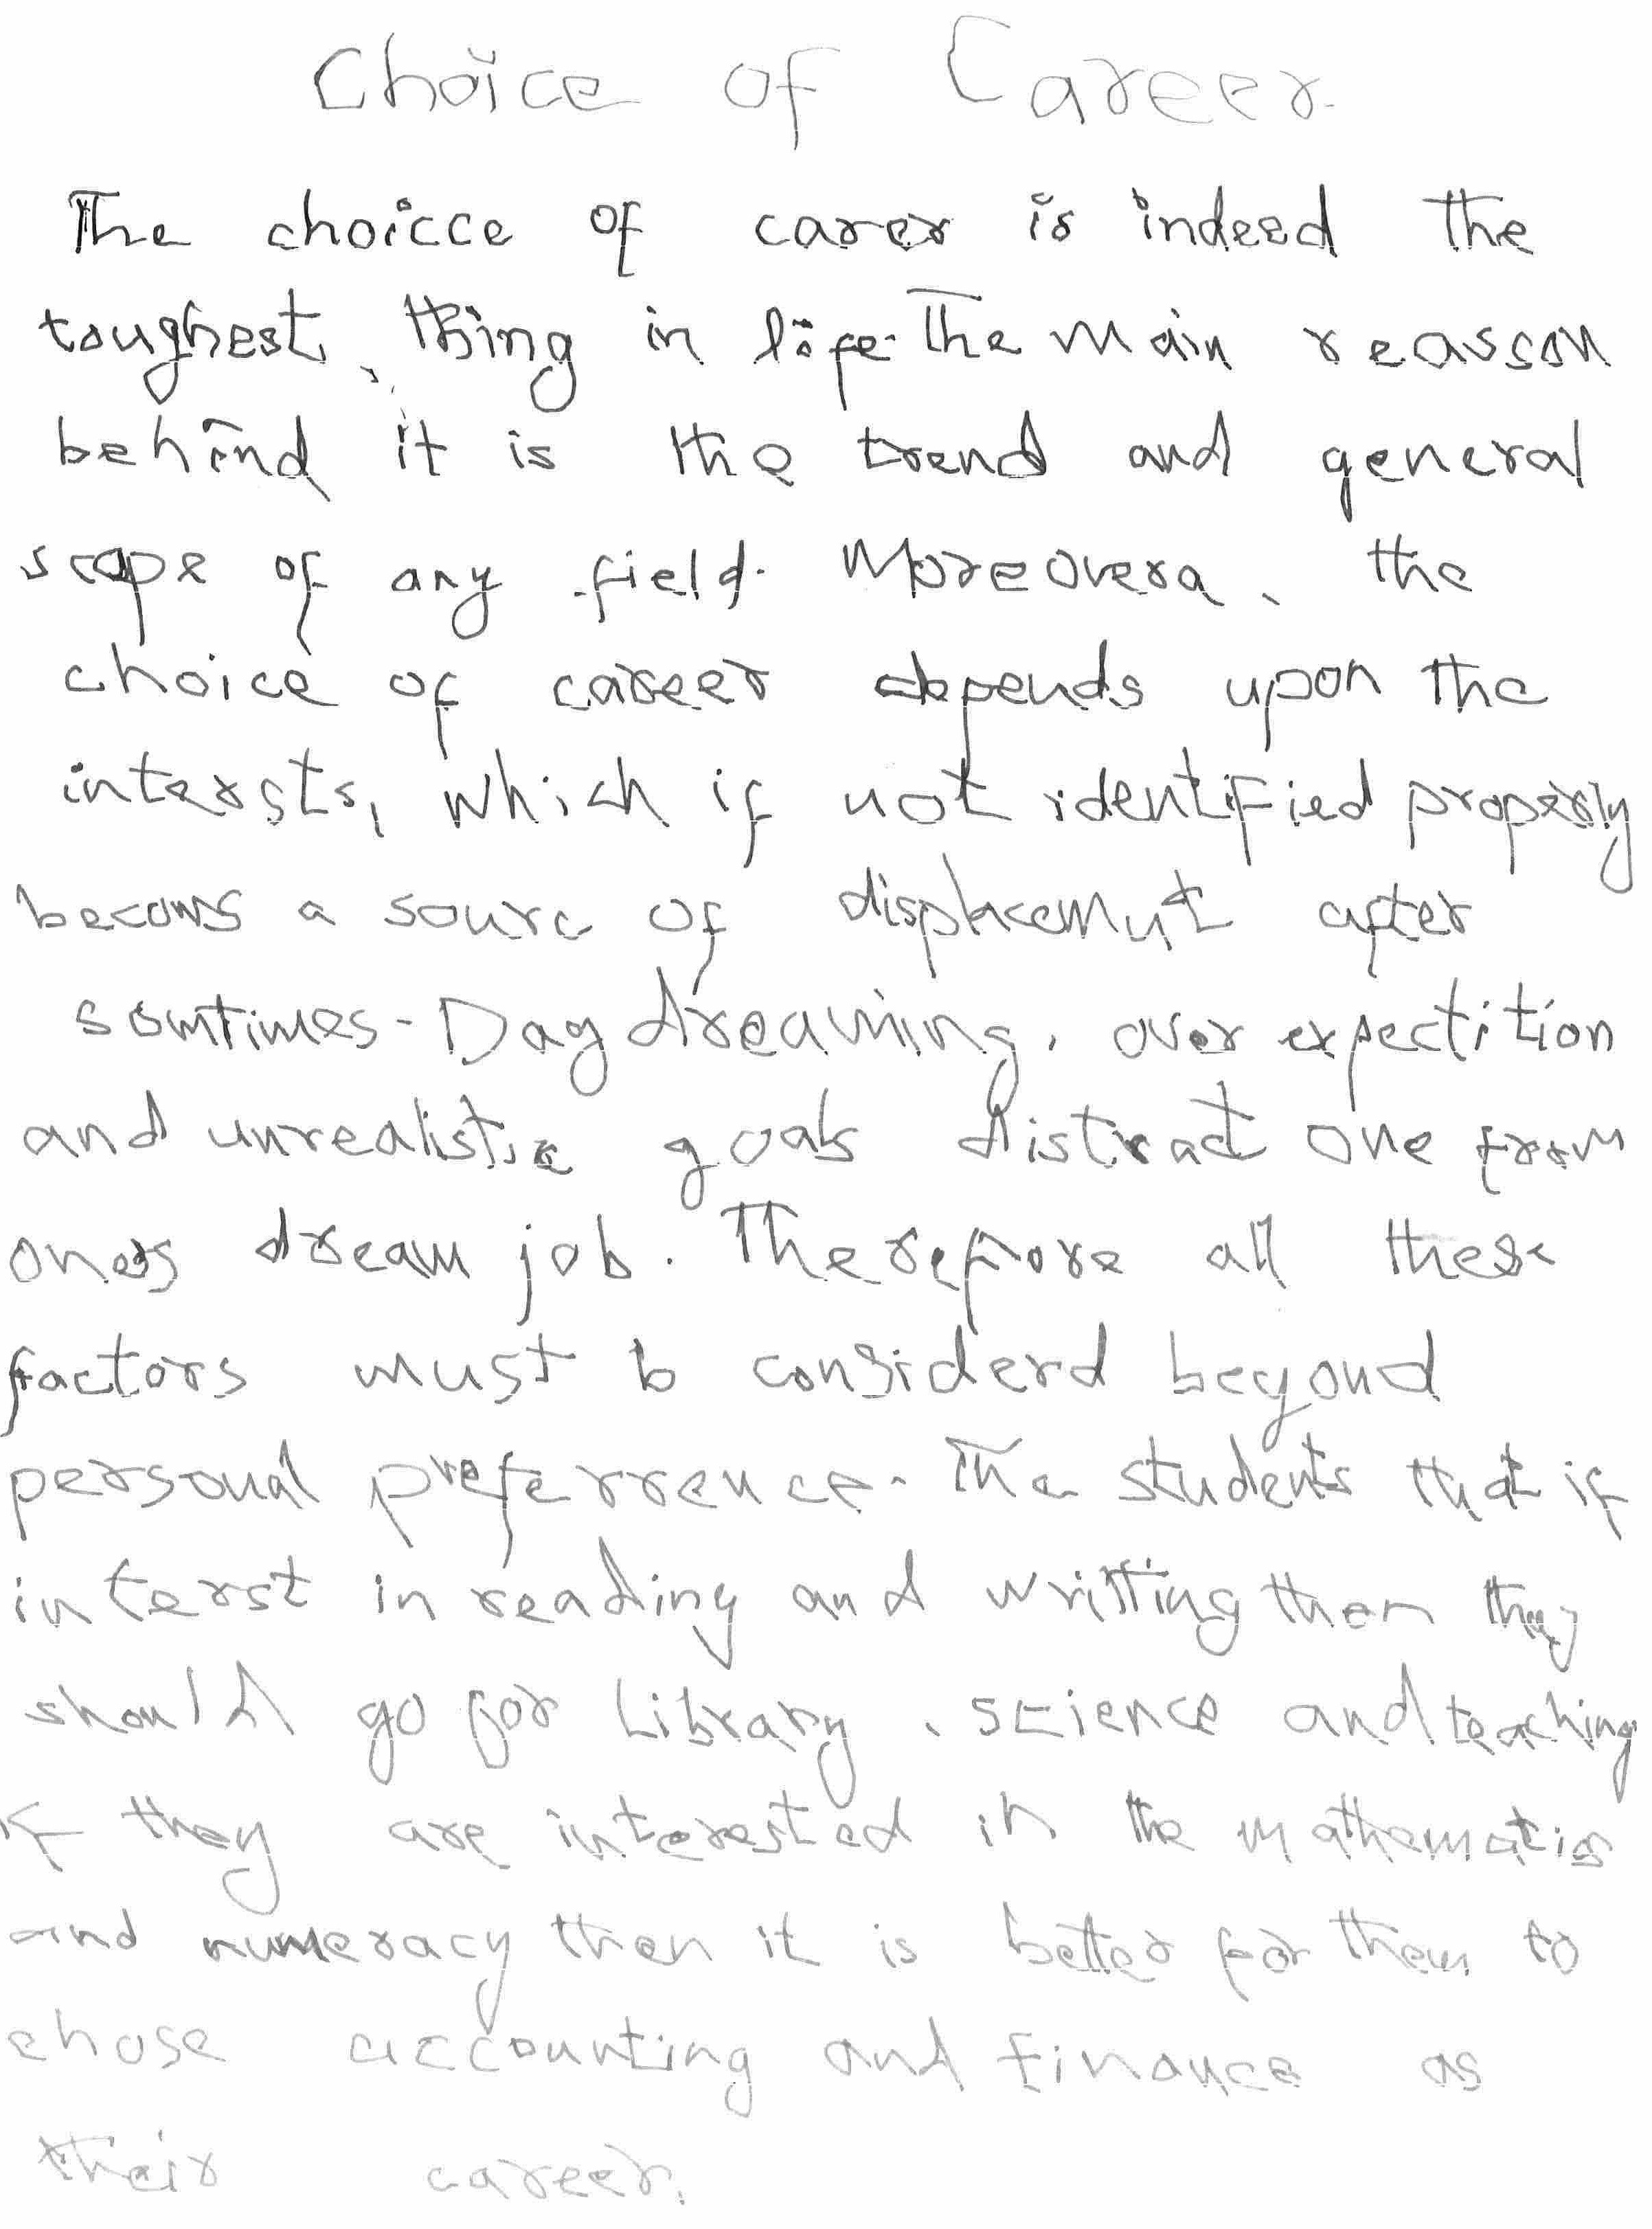 Choice of Career
The choicce of carer is indeed the
toughest, thing in life. The main reason
behind it is the trend and general
scope of any field. Moreovera, the
choice of career depends upon the
intersts, which if not identified properly
becoms a sourc of displacemut after
somtimes- Day dreaming, over expectition
and unrealistic goals distract one from
ones dream job. Therefore all these
factors must b considerd beyond
personal preferrence. The students that if
interst in reading and writting then they
should go for Library, science and teaching
If they are interested in the mathematics
and numeracy then it is better for them to
chose accounting and finance as
their career.